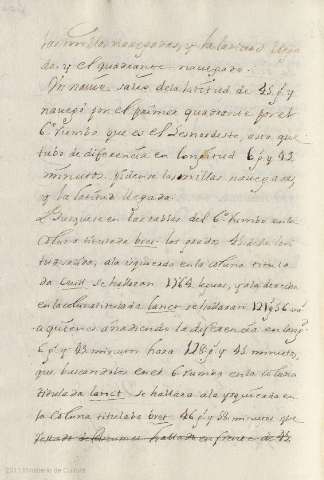 las millas navegadas, y la latitud llega
da, y el quadrante navegado.
Un navio sale de la latitud de 45 g.s y
navegó por el primer quadrante por el
6.º rumbo que es el Lesnordeste, avro que
tubo de diferencia en longitud 6 g.s y 43
minutos. pidense las millas navegadas,
y la latitud llegada.
Busquese en las tablas del 6.º rumbo en la
coluna titulada bret los grados 45 de la lati
tud salida, a la izquierda en la coluna titula
da se hallaran 1764 leguas, y a la derecha
en la coluna titulada lanct se hallaran 121 g.s 56 mi.
a quienes añadiendo la diferencia en long.
6 g.s y 43 minutos hara 128 g.s y 43 minutos,
que buscandolos en el 6 rumbo en la coluna
titulada lanct se hallara a la yzquierda en
la coluna titulada bret 46 g.s y 58 minutos que
en frente de 43
2011 Ministerio de Cultura